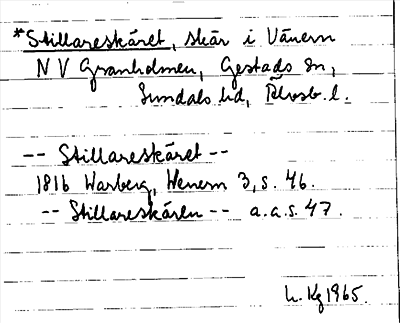 *Stillareskäret, skär i Vänern
N V Granholmen, Gestads sn,
Sundals hd, Älvsb. l.
-- Stillareskäret --
1816 Warberg, Wenern 3, s. 46.
-- Stillareskären -- a.a.s. 47.
L. Kg 1965.